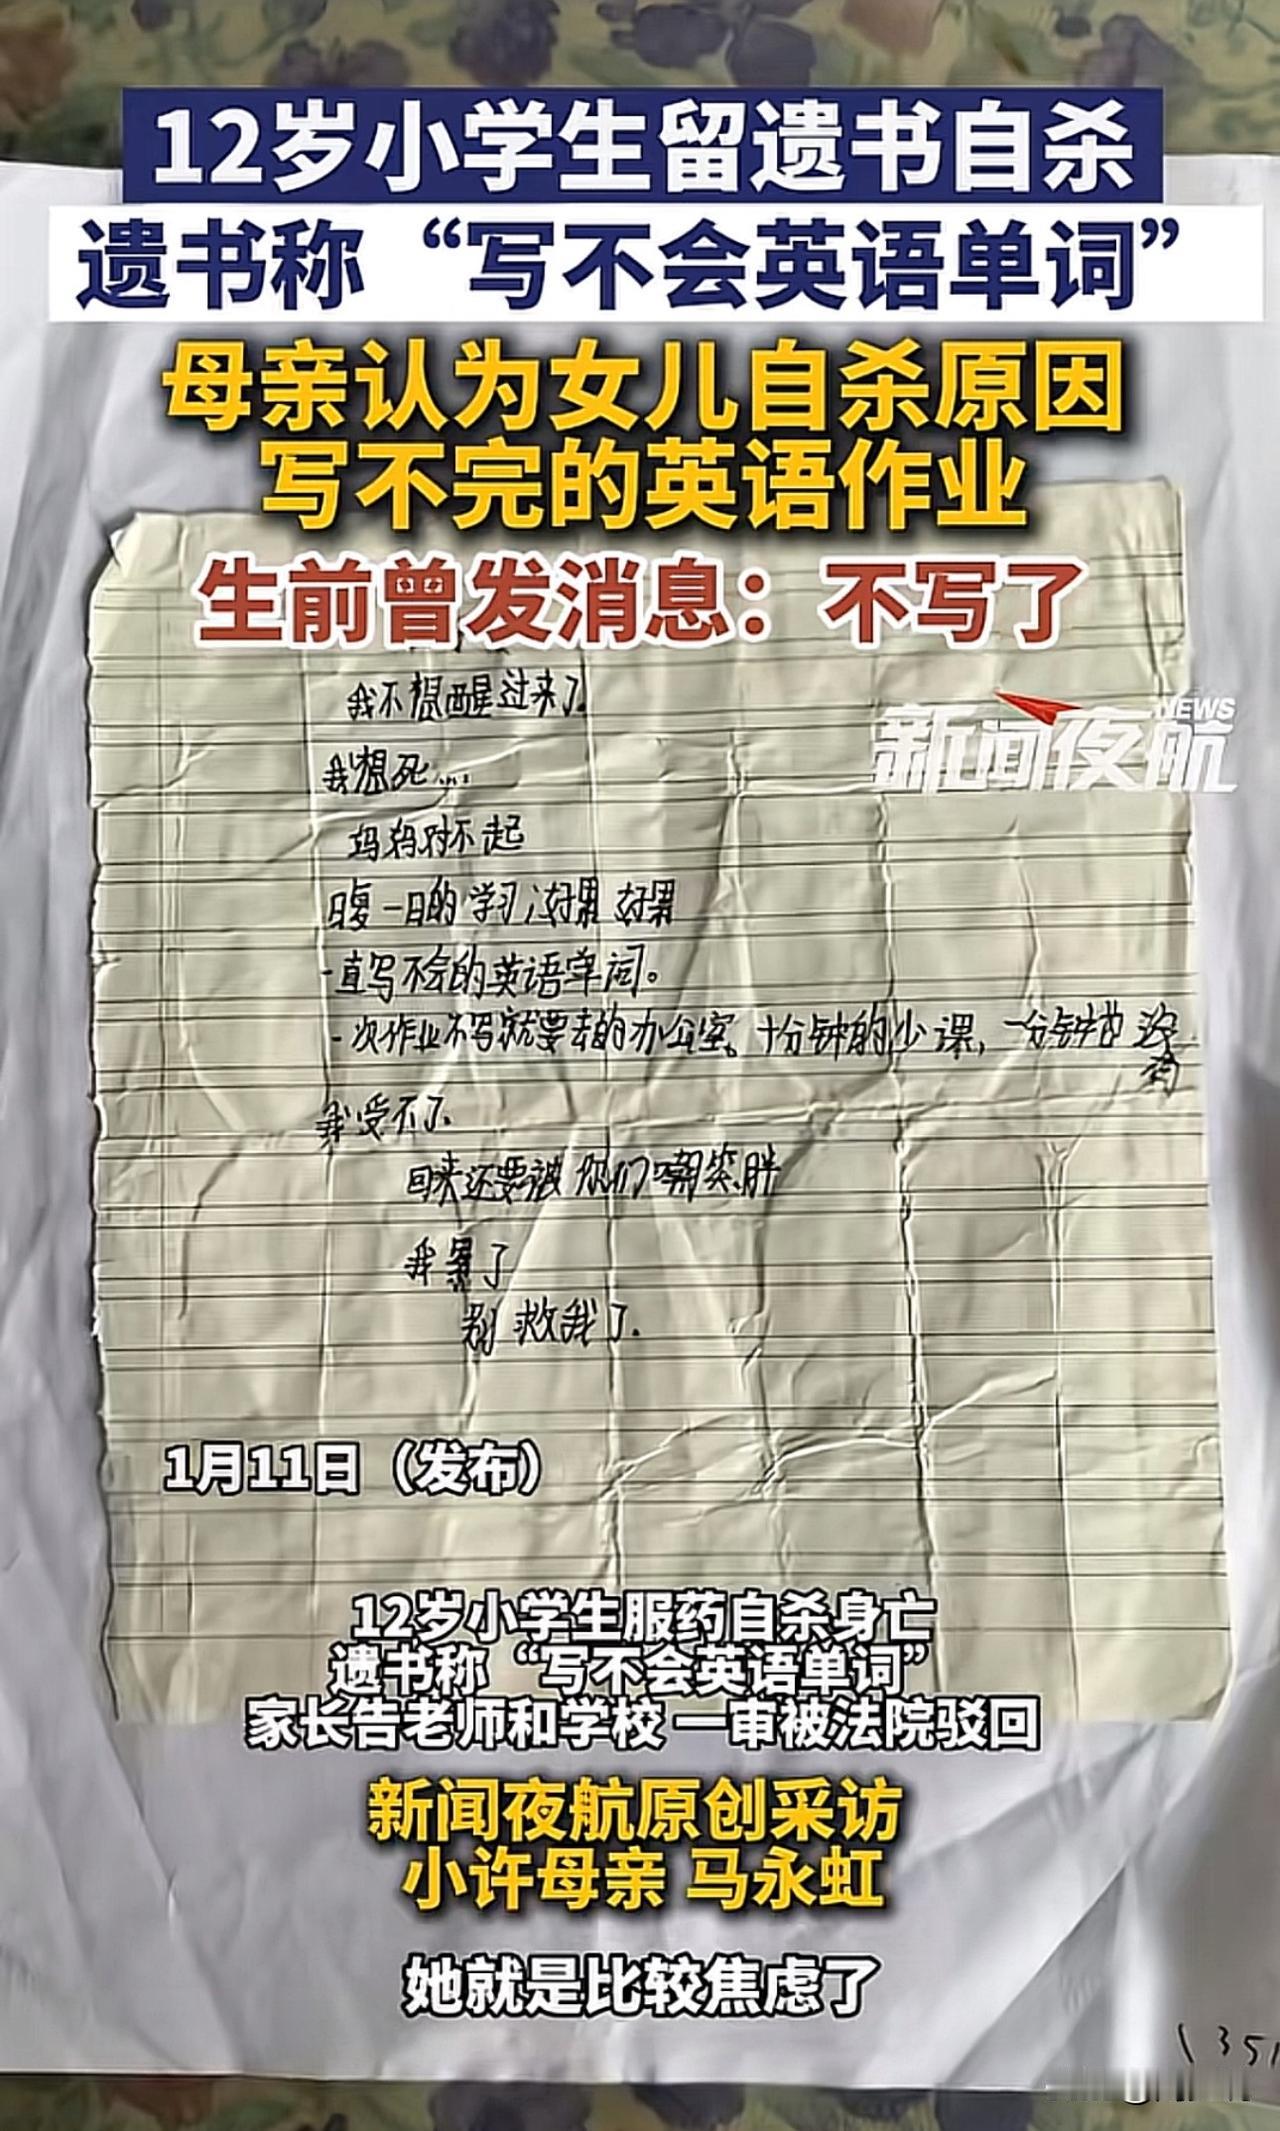 12岁小学生留遗书自杀
遗书称“写不会英语单词”
母亲认为女儿自杀原因
写不完的英语作业
生前曾发消息：不写了
我不想醒过来了.
NEWS
新闻夜航
我想死...
妈妈对不起
日复一日的学习，好累 好累
一直写不会的英语单词。
一次作业不写就要去的办公室。十分钟的少课，一分钟也没有
我受不了.
回来还要被你们嘲笑胖
我累了
别救我了.
1月11日（发布）
12岁小学生服药自杀身亡
遗书称“写不会英语单词”
家长告老师和学校 一审被法院驳回
新闻夜航原创采访
小许母亲 马永虹
她就是比较焦虑了
1351